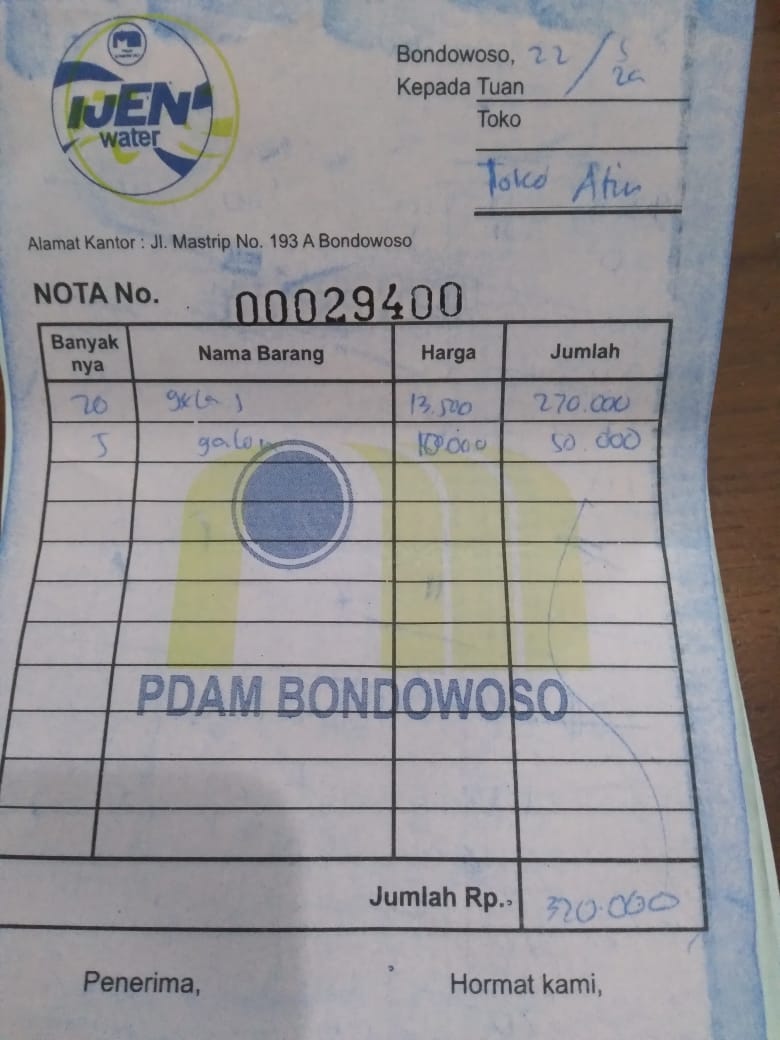 IJEN
water
Bondowoso, 22/5
20
Kepada Tuan
Toko
Toko Atin
Alamat Kantor : Jl. Mastrip No. 193 A Bondowoso
NOTA No. 00029400
Banyak nya Nama Barang Harga Jumlah
20 gelas 13.500 270.000
5 galon 10.000 50.000
PDAM BONDOWOSO
Jumlah Rp.. 320.000
Penerima, Hormat kami,